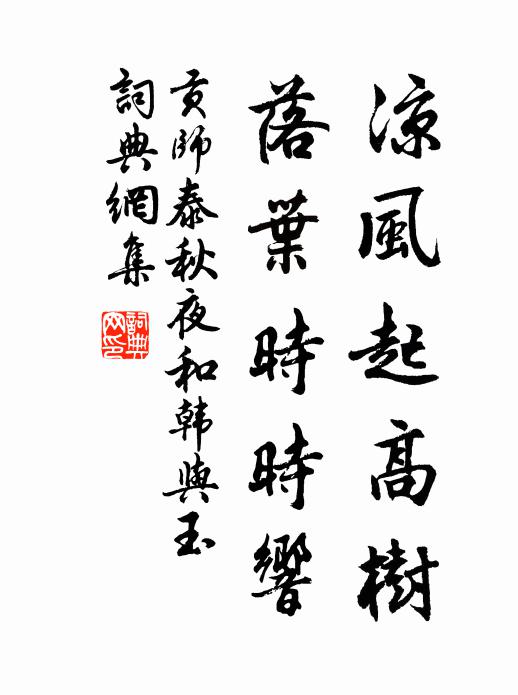 凉風起高樹
落葉時時響
贡師泰秋夜和韩與玉
詞典網集
詞典网印